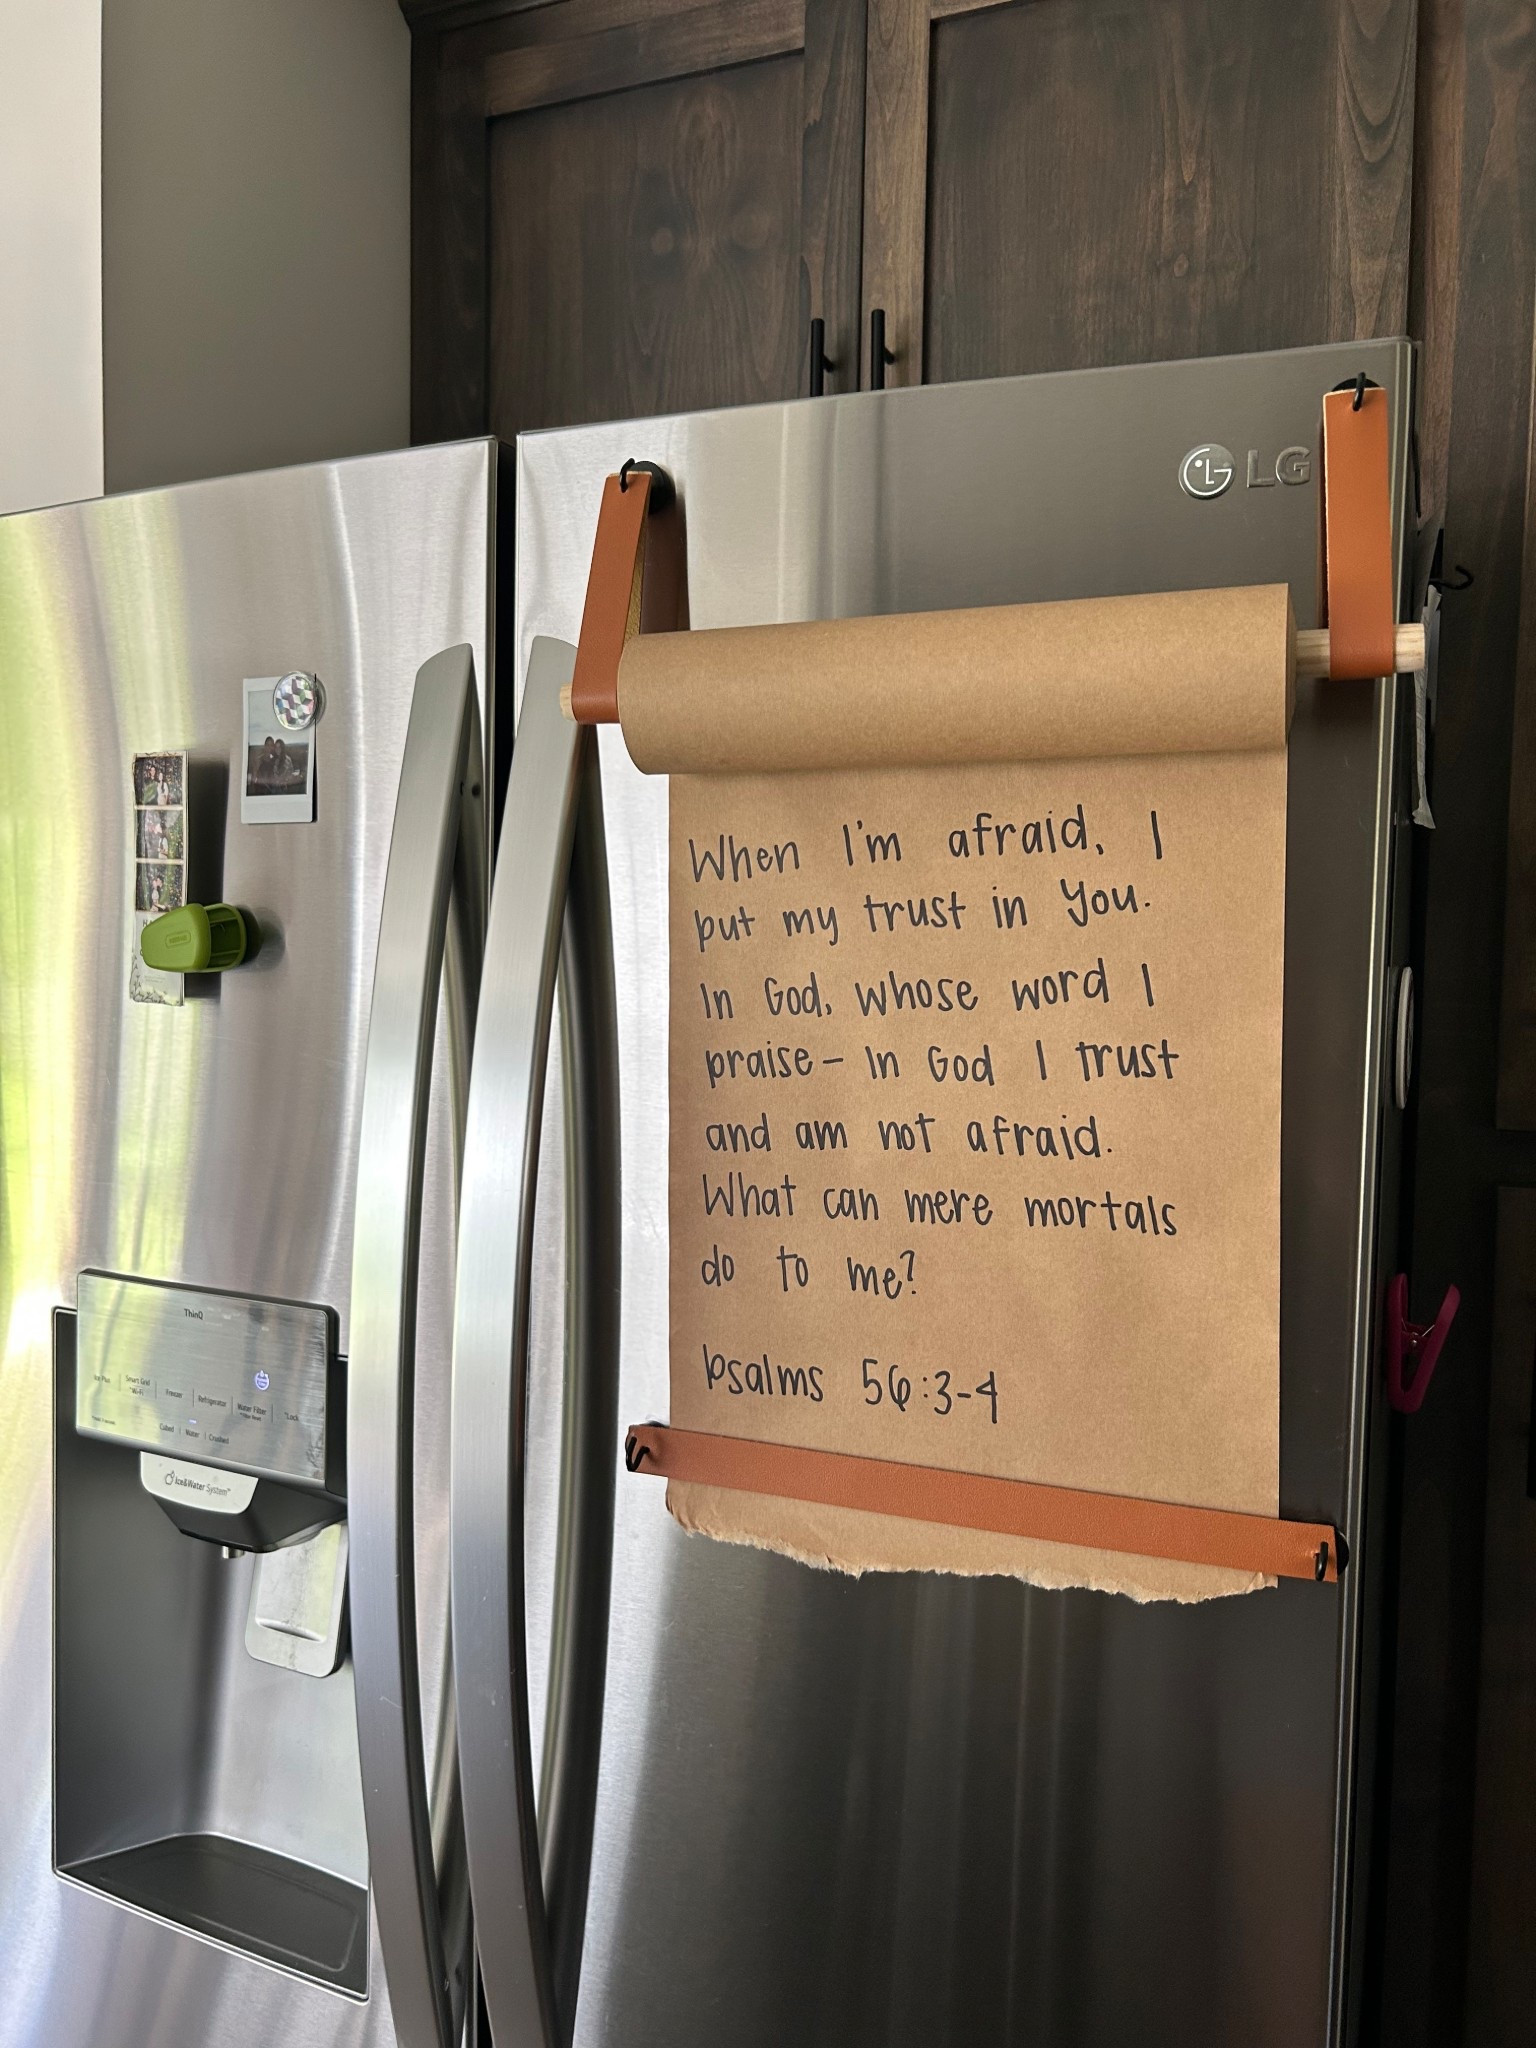 LG
When I'm afraid, I
put my trust in You.
In God, whose word I
praise - In God I trust
and am not afraid.
What can mere mortals
do to me?
Psalms 56:3-4
ThinQ
Ice Plus
Smart Grid
Wi-Fi
Freezer
Refrigerator
Water Filter
*Lock
Cubed
Water
Crushed
Ice&Water System™